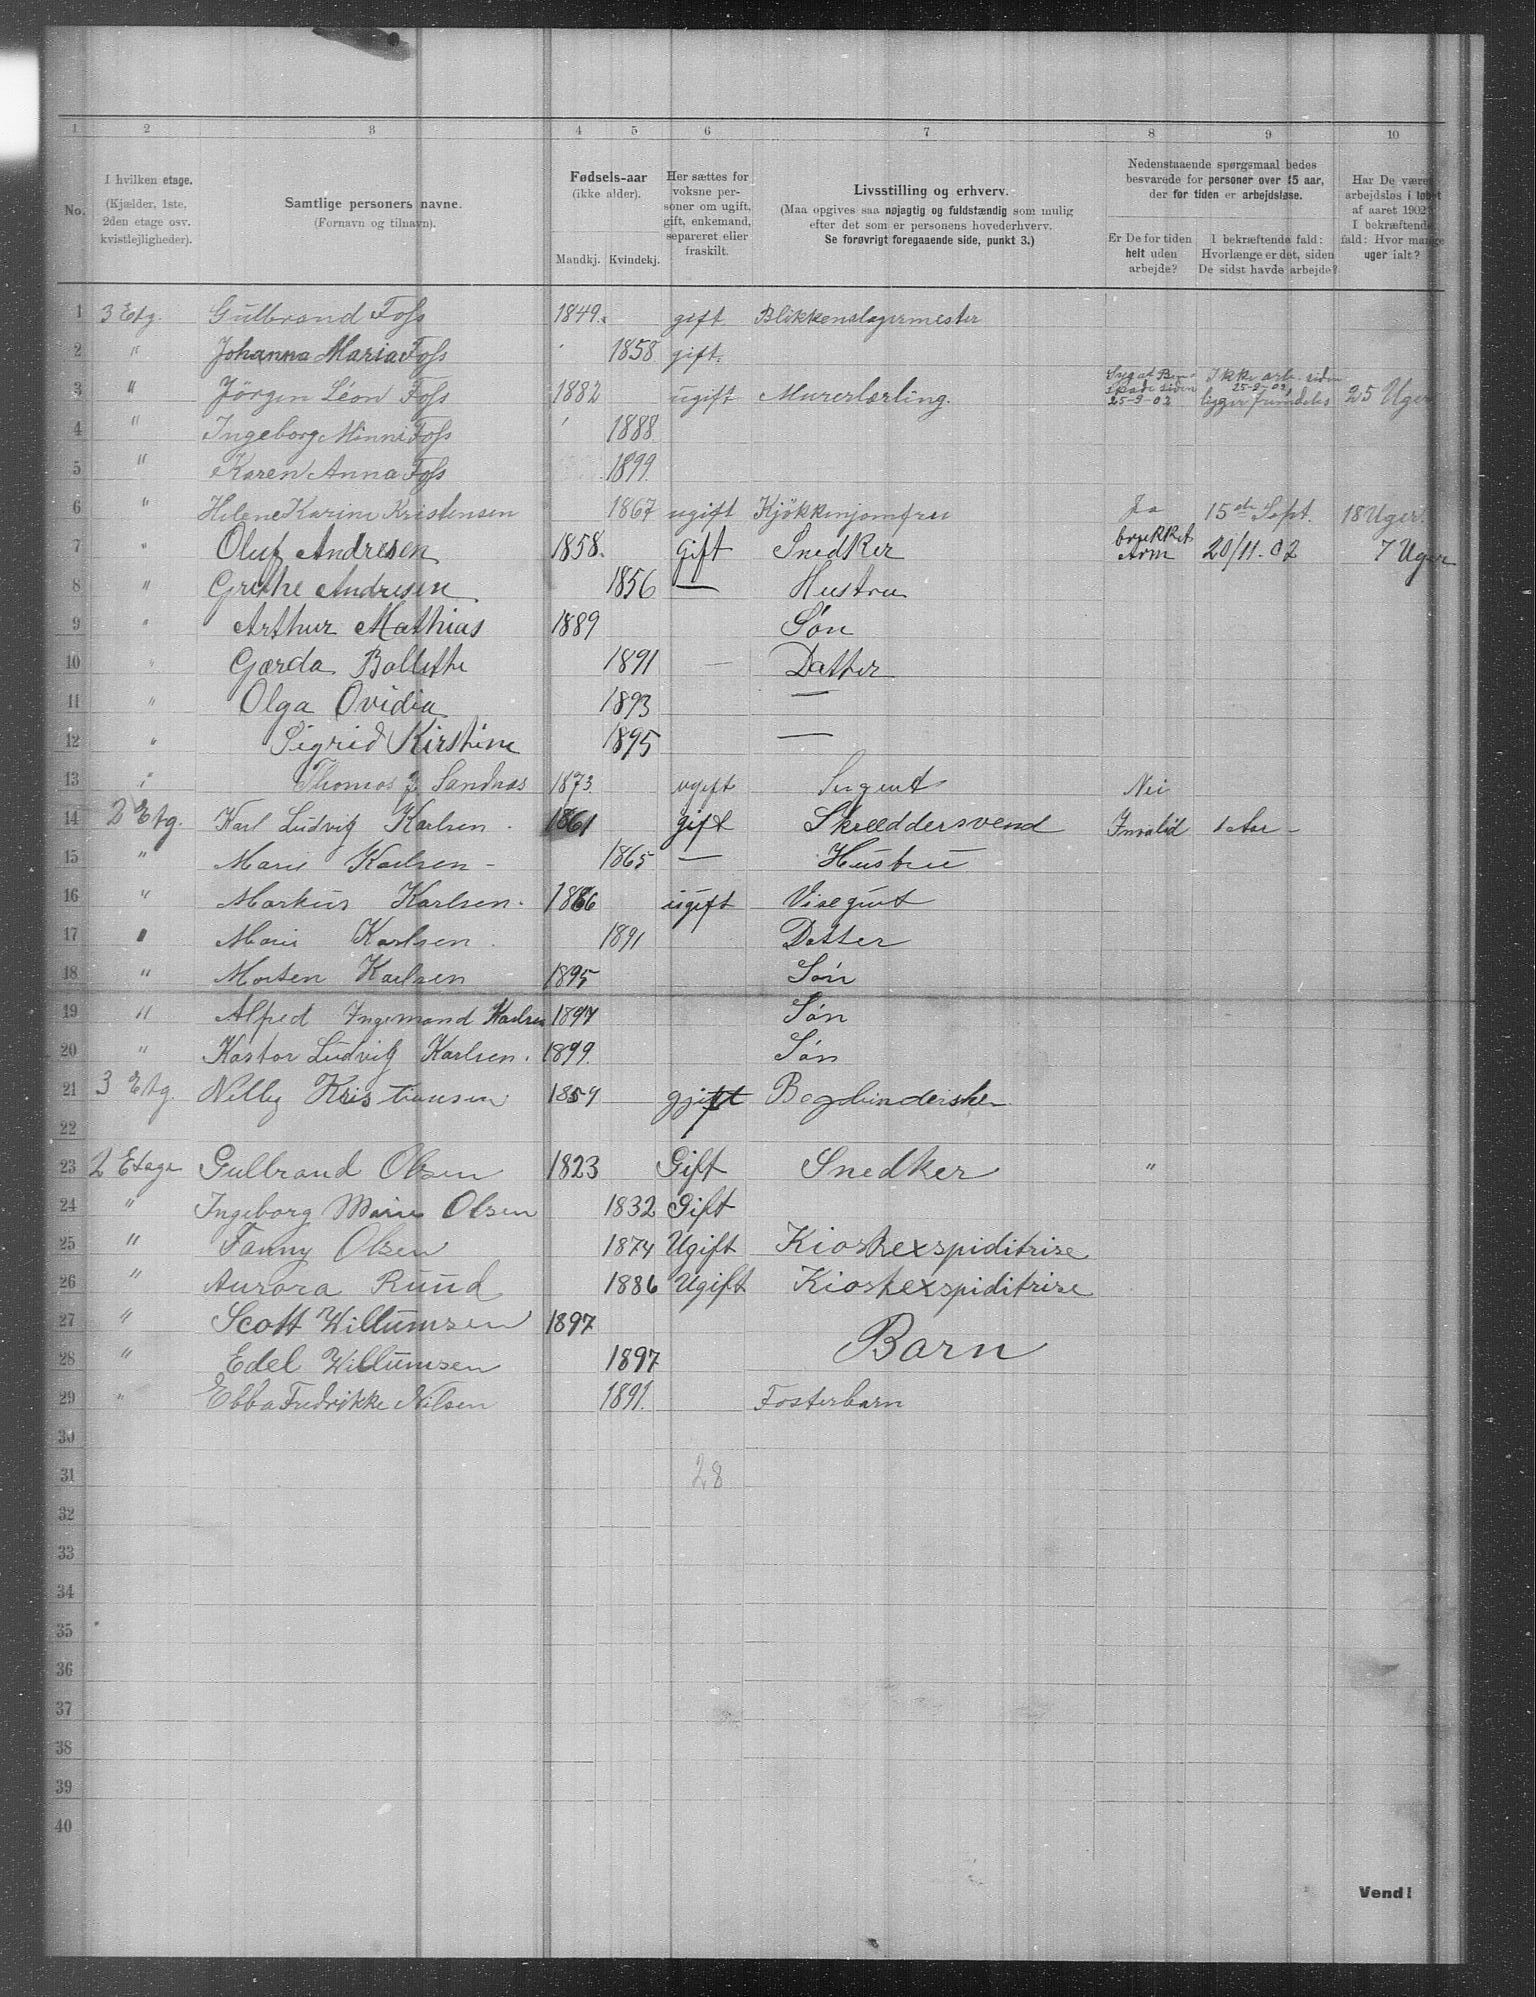 1 2 3 4 5 6 7 8 9 10
No.
I hvilken etage.
(Kjælder, 1ste,
2den etage osv.
kvistlejligheder).
Samtlige personers navne.
(Fornavn og tilnavn).
Fødsels-aar
(ikke alder).
Mandkj. Kvindekj.
Her sættes for
voksne per-
soner om ugift,
gift, enkemand,
separeret eller
fraskilt.
Livsstilling og erhverv.
(Maa opgives saa nøjagtig og fuldstændig som mulig
efter det som er personens hovederhverv.
Se forøvrigt foregaaende side, punkt 3.)
Nedenstaaende spørgsmaal bedes
besvarede for personer over 15 aar,
der for tiden er arbejdsløse.
Er De for tiden
helt uden
arbejde?
I bekræftende fald:
Hvorlænge er det, siden
De sidst havde arbejde?
Har De været
arbejdsløs i løbet
af aaret 1902?
I bekræftende
fald: Hvor mange
uger ialt?
1 3 Etg. Gulbrand Foss 1849. gift Blikkenslagermester
2 " Johanna Maria Foss 1858 gift.
3 " Jörgen Léon Foss 1882 ugift Murerlærling. siden 25-9-02 Ikke arb. siden 25-9-02 ligger fremdeles 25 Uger
4 " Ingeborg Minni Foss 1888
5 " Karen Anna Foss 1899
6 " Helene Karine Kristensen 1867 ugift Kjökkenjomfru Ja 15de Sept. 18 Uger.
7 " Oluf Andresen 1858. gift Snedker brækket Arm 20/11-02 7 Uger
8 " Grethe Andresen 1856 — Hustru
9 " Arthur Mathias 1889 Søn
10 " Gærda Bollethe 1891 — Datter
11 " Olga Ovidia 1893 —
12 " Sigrid Kirstine 1895 —
13 " Thomas J. Sandnæs 1873 ugift Sergent Nei
14 2 Etg. Karl Ludvig Karlsen. 1861 gift Skræddersvend Invalid 1 Aar –
15 " Marie Karlsen – 1865 — Hustru
16 " Markus Karlsen. 1886 ugift Visegut
17 " Marie Karlsen. 1891 Datter
18 " Morten Karlsen 1895 Søn
19 " Alfred Ingemand Karlsen 1897 Søn
20 " Kastor Ludvig Karlsen. 1899. Søn
21 3 Etg. Nelly Kristiansen 1859 gift Bogbinderske
22
23 2 Etage Gulbrand Olsen 1823 Gift Snedker "
24 " Ingeborg Marie Olsen 1832 Gift
25 " Fanny Olsen 1874 Ugift Kioskexspiditrise
26 " Aurora Ruud 1886 Ugift Kioskexspiditrise
27 " Scott Willumsen 1897
Barn
28 " Edel Willumsen 1897
29 " Ebba Fredrikke Nilsen 1891. Fosterbarn
30
31 28
32
33
34
35
36
37
38
39
40
Vend!